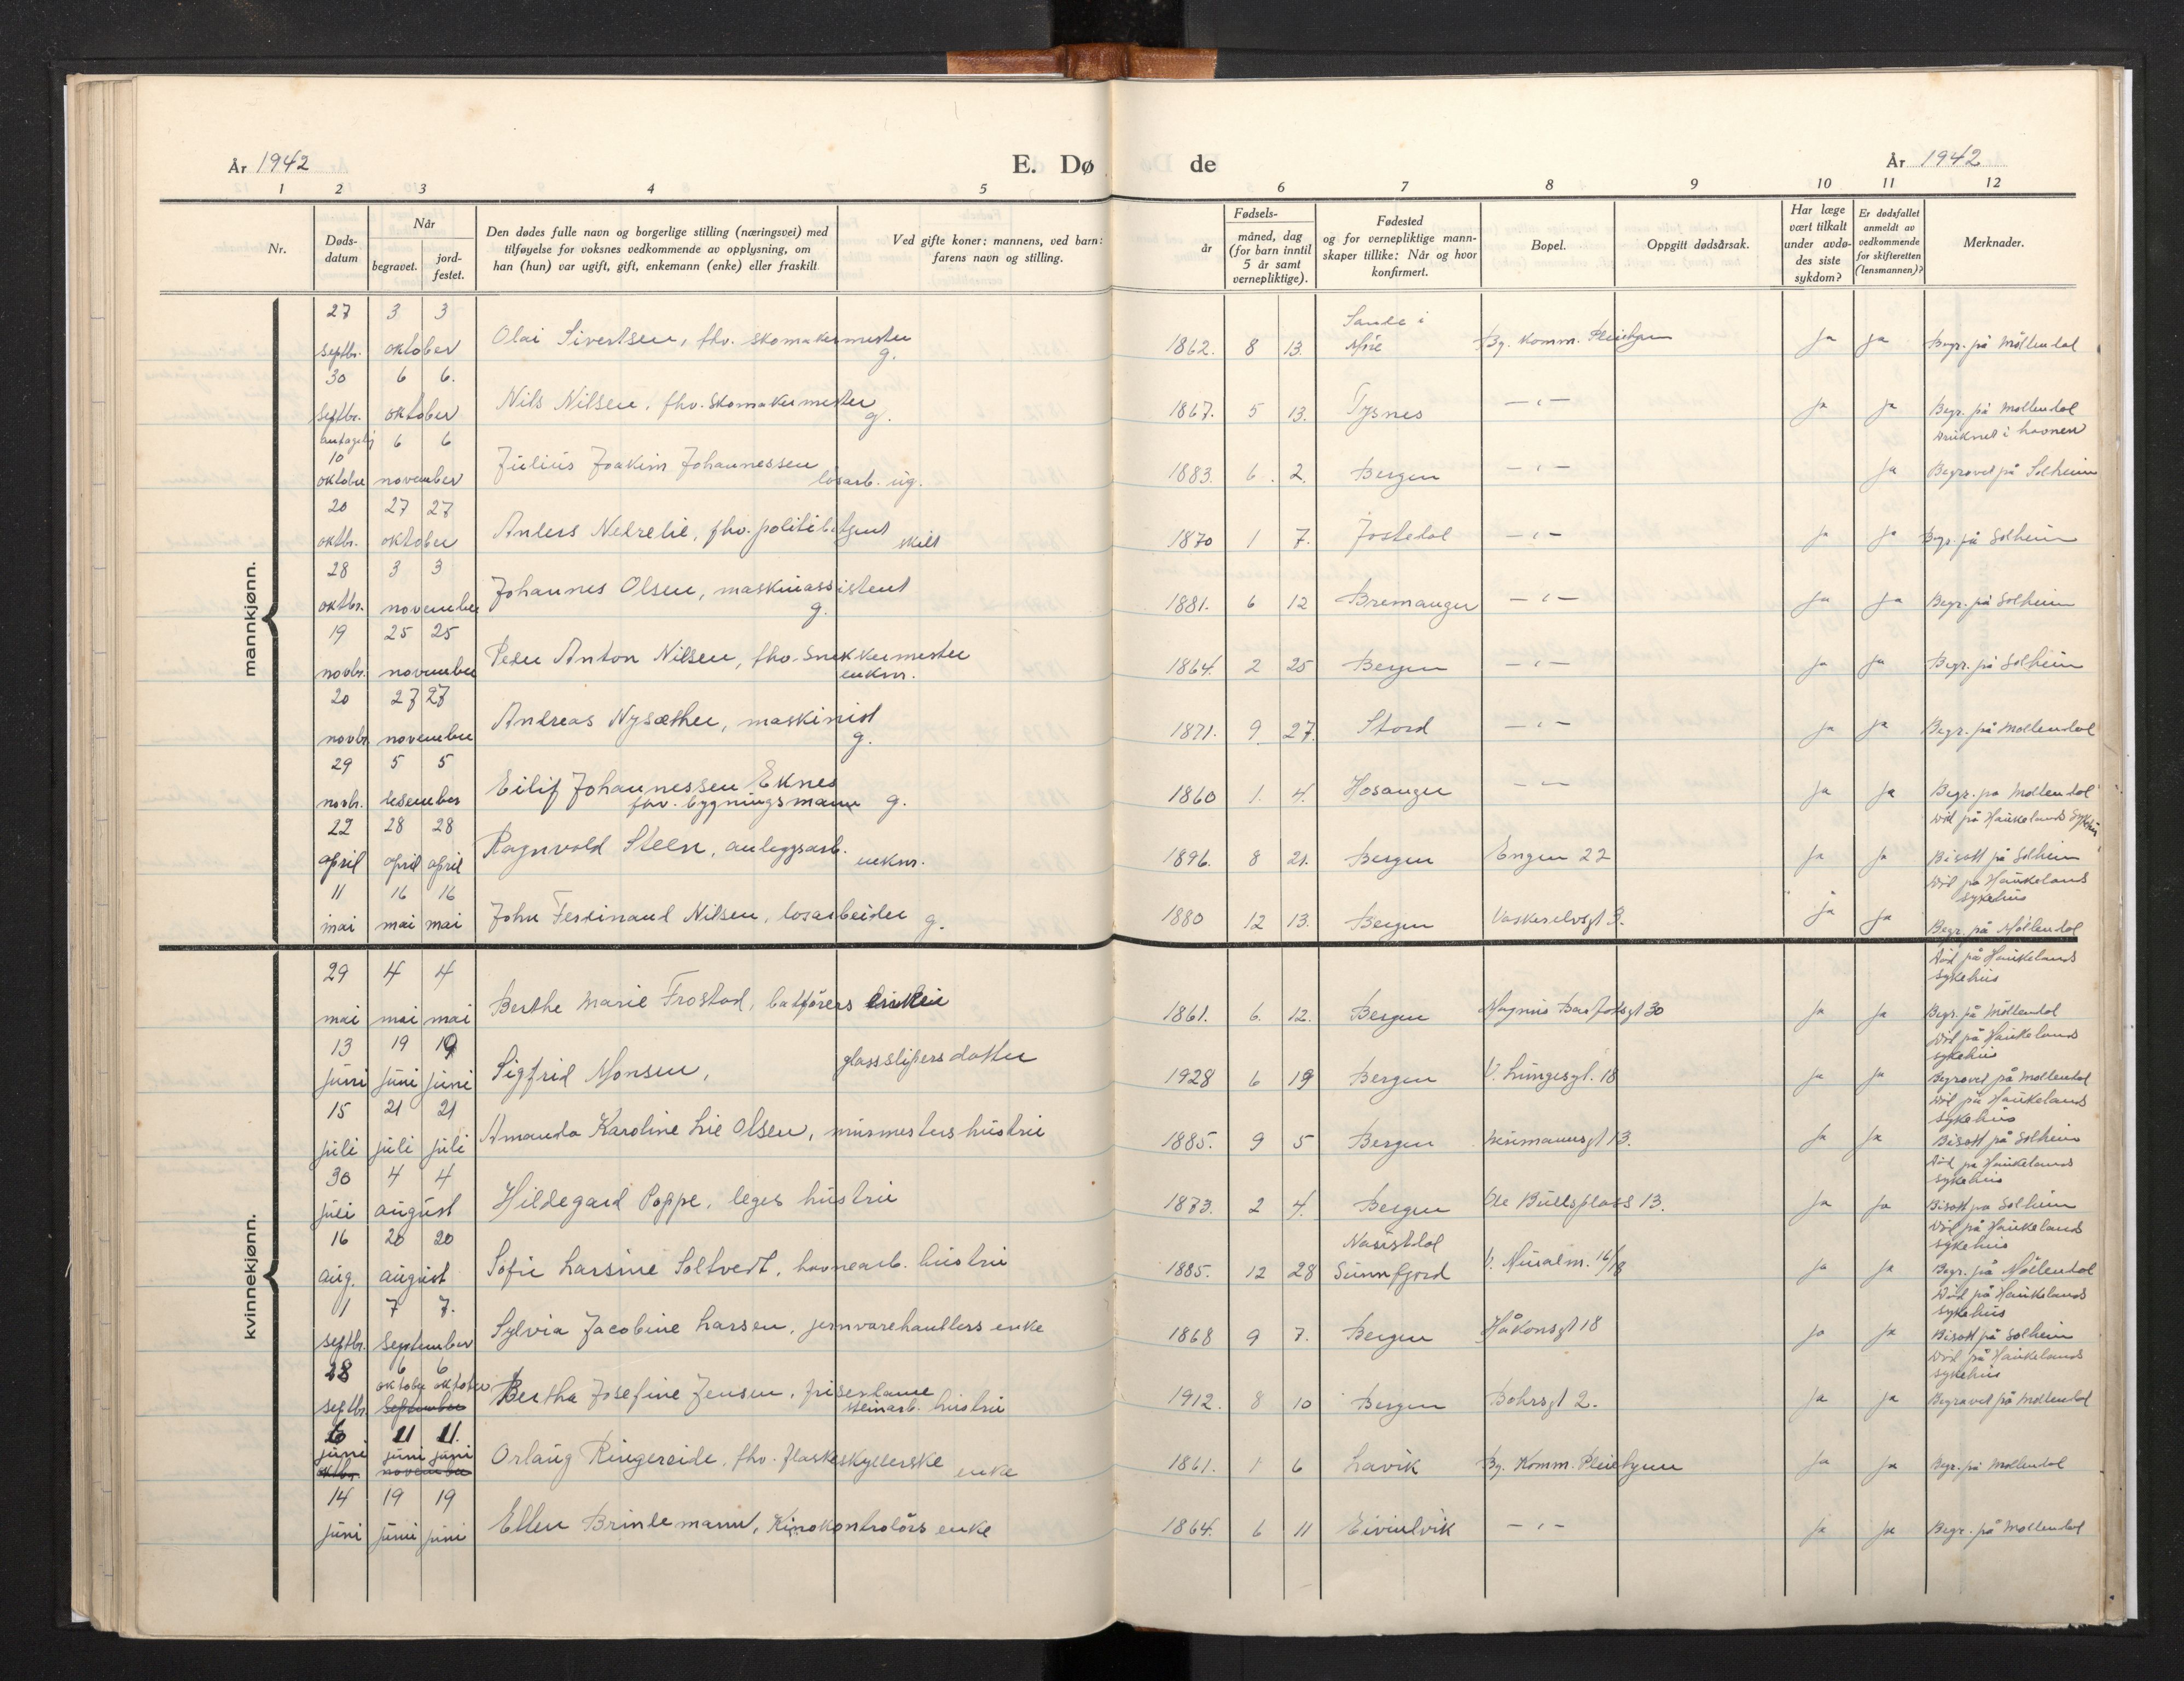 År 1942
E. Dø de
År 1942
1 2 3 4 5 6 7 8 9 10 11 12
Nr.
Døds-datum
Når
begravet.
jord-festet.
Den dødes fulle navn og borgerlige stilling (næringsvei) med
tilføyelse for voksnes vedkommende av opplysning, om
han (hun) var ugift, gift, enkemann (enke) eller fraskilt
Ved gifte koner: mannens, ved barn:
farens navn og stilling.
Fødsels-
år
måned, dag
(for barn inntil
5 år samt
vernepliktige).
Fødested
og for vernepliktige mann-
skaper tillike: Når og hvor
konfirmert.
Bopel.
Oppgitt dødsårsak.
Har læge
vært tilkalt
under avdø-
des siste
sykdom?
Er dødsfallet
anmeldt av
vedkommende
for skifteretten
(lensmannen)?
Merknader.
mannkjønn.
27 3 3
septbr. oktober Olai Sivertsen, fhv. skomakermester g. 1862. 8 13. Sande i Møre Bg. Komm. Pleiehjem ja ja Begr. på Möllendal
30 6 6.
septbr. oktober Nils Nilsen, fhv. skomakermester g. 1867. 5 13. Tysnes — " — ja ja Begr. på Möllendal
antagelig 10 6 6
oktober november Julius Joakim Johannessen løsarb. ug. 1883. 6. 2. Bergen — " — ja druknet i havnen Begravet på Solheim
20 27 27
oktbr. oktober Anders Nedrelid, fhv. politibetjent skilt 1870 1 7. Jostedal — " — ja ja Begr. på Solheim
28 3 3
oktbr. november Johannes Olsen, maskinassistent g. 1881. 6 12 Bremanger — " — ja ja Begr. på Solheim
19 25 25
novbr. november Peder Anton Nilsen, fhv. snekkermester enkm. 1864. 2 25 Bergen — " — ja ja Begr. på Solheim
20 27 27
novbr. november Andreas Nysæther, maskinist g. 1871. 9 27. Stord — " — ja ja Begr. på Möllendal
29 5 5
novbr. desember Eilif Johannessen Eknes fhv. bygningsmann g. 1860 1. 4. Hosanger — " — ja ja Begr. på Möllendal
22 28 28
april april april Ragnvald Steen, anleggsarb. enkm. 1896. 8 21. Bergen Engen 22 ja ja död på Haukelands sykehus Bisatt på Solheim
11 16 16
mai mai mai John Ferdinand Nilsen, løsarbeider g. 1880 12 13. Bergen Vaskerelvsgt 3. ja ja död på Haukelands sykehus Begr. på Möllendal
kvinnekjønn.
29 4 4
mai mai mai Berthe Marie Frostad, båtførers enke 1861. 6. 12. Bergen Magnus Barfotsgt 30 ja ja död på Haukelands sykehus Begr. på Möllendal
13 19 19
juni juni juni Sigfrid Monsen, glasslipers datter 1928 6 19 Bergen V. Lungesgt. 18 ja ja död på Haukelands sykehus Begravet på Möllendal
15 21 21
juli juli juli Amanda Karoline Lie Olsen, murmesters hustru 1885. 9 5 Bergen 13. ja ja död på Haukelands sykehus Bisatt på Solheim
30 4 4
juli august Hildegard Poppe, leges hustru 1873. 2 4. Bergen Ole Bullsplass 13. ja ja död på Haukelands sykehus Bisatt på Solheim
16 20 20
aug. august Sofie Larsine Soltvedt, havnearb. hustru 1885. 12 28 Naustdal Sunnfjord V. Muralm. 16/18 ja ja död på Haukelands sykehus Begr. på Möllendal
1 7 7.
septbr. september Sylvia Jacobine Larsen, jernvarehandlers enke 1868 9 7. Bergen Håkonsgt 18 ja ja död på Haukelands sykehus Bisatt på Solheim
28 6 6
septbr. oktober oktober september Bertha Josefine Jensen, friserdame steinarb. hustru 1912. 8 10 Bergen Bohrsgt 2. ja ja död på Haukelands sykehus Begravet på Möllendal
6 11 11.
juni juni juni oktbr. november Orlaug Ringereide, fhv. flaskeskyllerske enke 1861. 1 6 Lavik Bg. Komm. Pleiehjem ja ja Begr. på Möllendal
14 19 19
juni juni juni Ellen Brinkmann, Kinokontrolørs enke 1864. 6 11 Eivindvik — " — ja ja Begr. på Möllendal